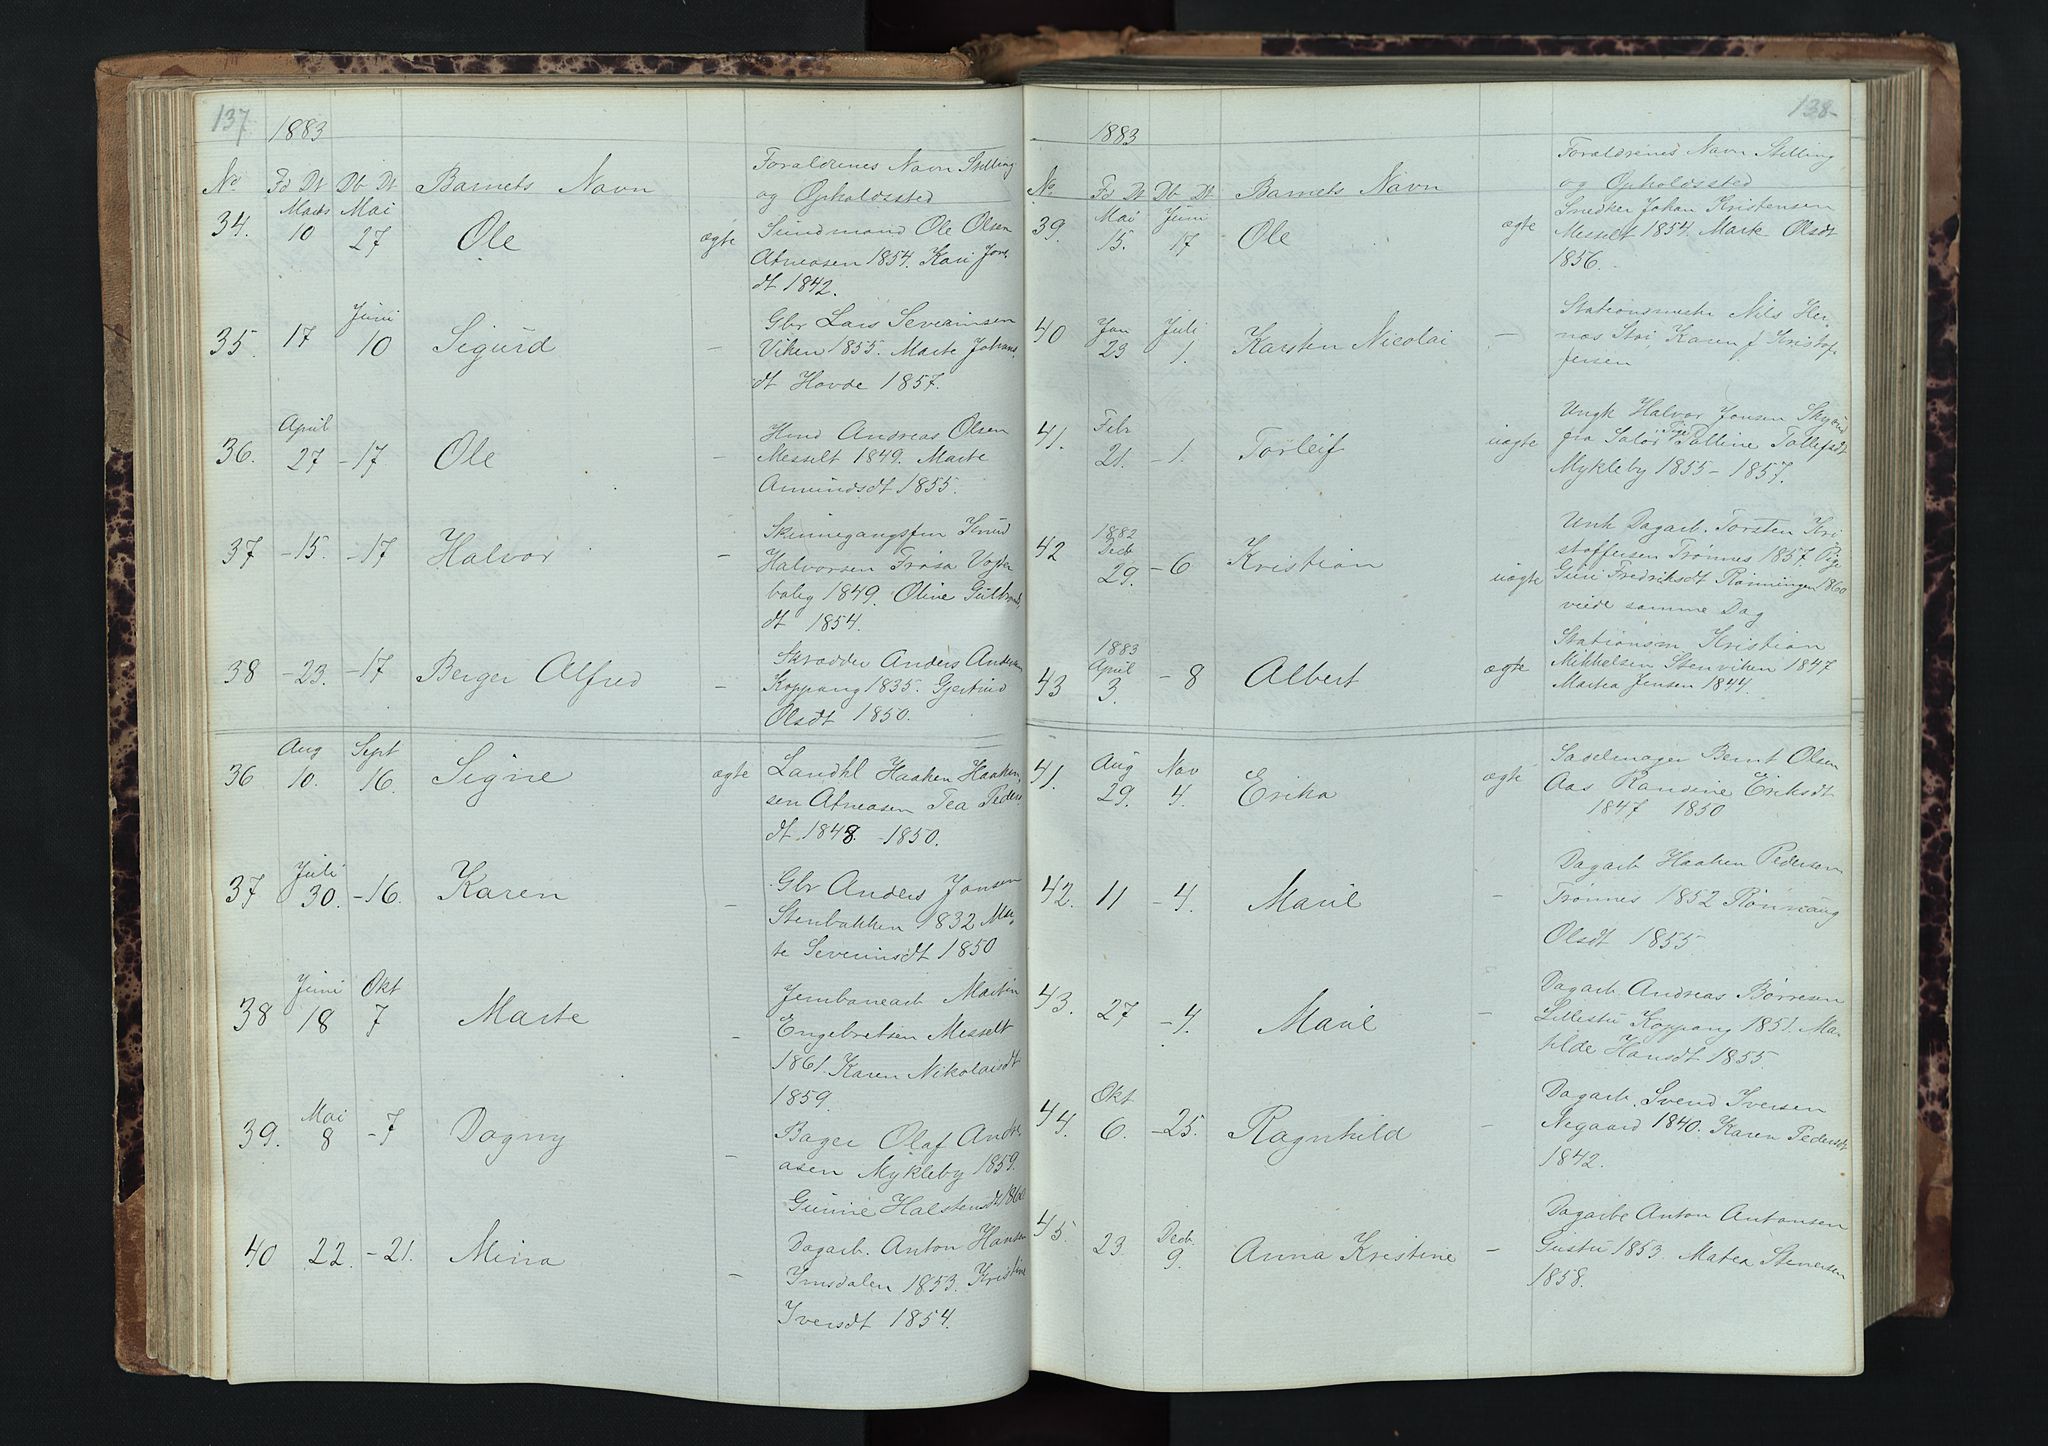 137
1883
No Fd Dt Db Dt Barnets Navn Forældrenes Navn Stilling
og Opholdssted
34. Marts 10 Mai 27 Ole ægte Sundmand Ole Olsen
Atneosen 1854. Kari Jons
dt 1842.
35. 17 Juni 10 Sigurd – Gbr Lars Severinsen
Viken 1855. Marte Johans
dt Hovde 1857.
36. April 27 – 17 Ole – Hmd Andreas Olsen
Messelt 1849. Marte
Amundsdt 1855.
37 – 15. – 17 Halvor – Skinnegangsfm Knud
Halvorsen Frøsa Vogter
bolig 1849. Oline Gulbrands
dt 1854.
38 – 23. – 17 Berger Alfred – Skrædder Anders Andersen
Koppang 1835. Gjertrud
Olsdt 1850.
36 Aug 10. Sept 16. Signe ægte Landhl Haaken Haaken
sen Atneosen Tea Peders
dt 1848. – 1850.
37 Juli 30. – 16. Karen – Gbr Anders Jonsen
Stenbakken 1832 Mar
te Severinsdt 1850
38 Juni 18 Okt 7 Marte – Jernbanearb Martin
Engebretsen Messelt
1861. Karen Nikolaisdt
1859.
39. Mai 8 – 7 Dagny – Bager Olaf Andre
asen Mykleby 1859.
Gunne Halstensdt
40 22. – 21. Mina – Dagarb. Anton Hansen
Imsdalen 1853. Kristine
Iversdt 1854.
138
1883
No Fd Dt Db Dt Barnets Navn Forældrenes Navn Stilling
og Opholdssted
39. Mai 15. Juni 17 Ole ægte Snedker Johan Kristensen
Messelt 1854. Marte Olsdt
1856.
40 Jan 23 Juli 1. Karsten Nicolai – Stationsmester Nils Her
næs Stai, Karen f Kristof
fersen
41. Febr 21. – 1. Torleif uægte Ungk Halvor Jonsen
fra Solør Pige Palline Tollefsdt
Mykleby 1855 – 1857.
42 1882 Decb 29. – 6 Kristian uægte Unk Dagarb. Torsten Kri
stoffersen Trønnes 1857. Pige
Guri Fredriksdt Rønningen 1860
viede samme Dag
43 1883 April 3. – 8 Albert ægte Stationsm Kristian
Mikkelsen Stenviken 1847
Martea Jensen 1844.
41. Aug 29. Nov 4. Erika ægte Sadelmager Bernt Olsen
Aas Randine Eriksdt
1847 1850
42. 11 – 4. Marie – Dagarb Haaken Pedersen
Trønnes 1852 Rønnaug
Olsdt 1855.
43. 27 – 4. Marie – Dagarb. Andreas Børresen
Lillestu Koppang 1851. Ma
tilde Hansdt 1855.
44. Okt 6. – 25. Ragnhild – Dagarb. Svend Iversen
Negaard 1840. Karen Pedersdt
1842.
45. 23. Decb. 9. Anna Kristine – Dagarbe Anton Antonsen
Gustu 1853. Matea Stenersen
1858.